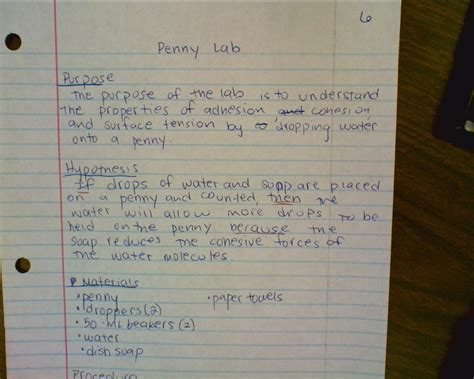 6
Penny Lab
Purpose
The purpose of the lab is to understand
the properties of adhesion and cohesion
and surface tension by to dropping water
onto a penny.
Hypothesis
If drops of water and soap are placed
on a penny and counted, then the
water will allow more drops to be
held on the penny because the
soap reduces the cohesive forces of
the water molecules
Materials
• penny
• paper towels
• droppers (2)
• 50-mL beakers (2)
• water
• dish soap
Procedure